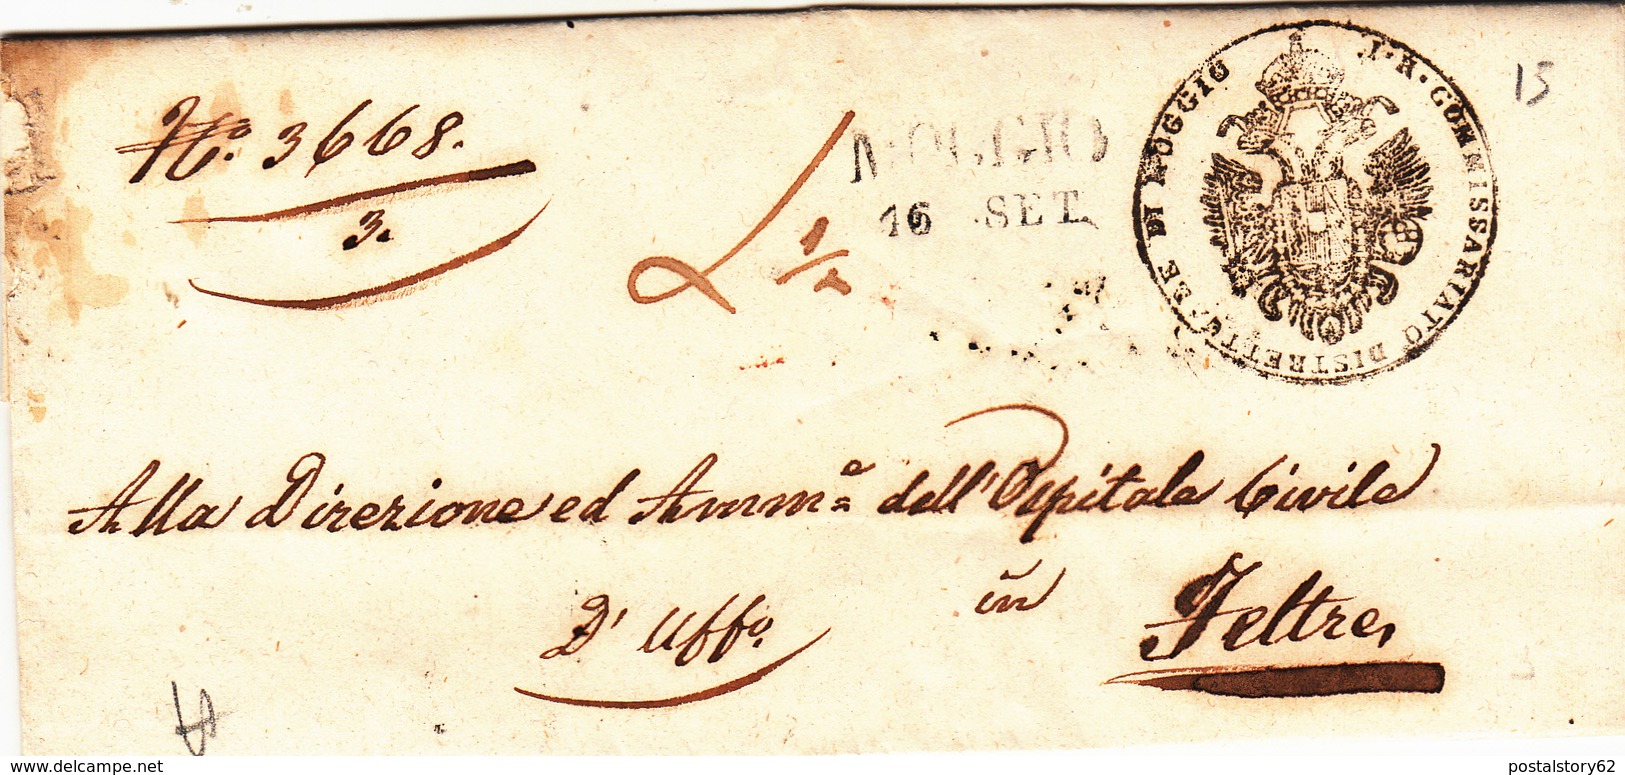 15
No. 3668.
3.
L 1/2
MOGGIO
16 SET.
I. R. COMMISSARIATO DISTRETTUALE DI MOGGIO
Alla Direzione ed Ammne dell'Ospitale Civile
D' Uffo.
in
Feltre,
the delcampe.net
postalstory62